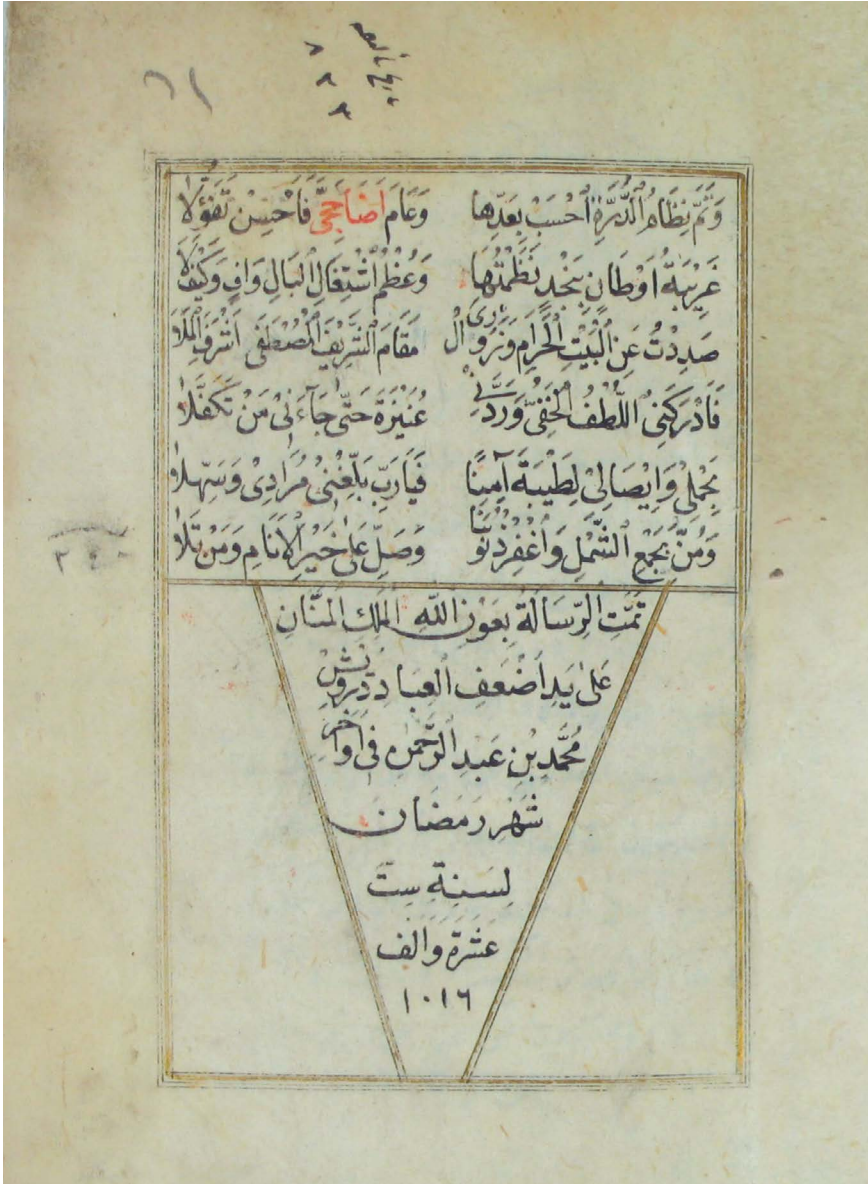 تاريخ تأليفه
٨٢٣
٦١
وَتَمَّ نِظَامُ الدُّرَّةِ احْسُبْ بِعَدِّهَا وَعَامَ اَضَا حَجِّى فَاَحْسِنْ تَفَوُّلَا
غَرِيبَةُ اَوْطَانٍ بِنَجْدٍ نَظَمْتُهَا وَعُظْمُ اشْتِغَالِ الْبَالِ وَافٍ وَكَيْفَ لَا
صَدِدْتُ عَنِ الْبَيْتِ الْحَرَامِ وَزَوْرِىَ الْ مَقَامَ الشَّرِيفَ الْمُصْطَفَى اَشْرَفَ الْمَلَا
فَاَدْرَكَنِى اللُّطْفُ الْخَفِىُّ وَرَدَّنِى عُنَيْزَةَ حَتَّى جَاءَنِى مَنْ تَكَفَّلَا
بِحَمْلِى وَاِيْصَالِى لِطَيْبَةَ آمِنًا فَيَارَبِّ بَلِّغْنِى مُرَادِى وَسَهِّلَا
وَمُنَّ بِجَمْعِ الشَّمْلِ وَاغْفِرْ ذُنُوبَنَا وَصَلِّ عَلَى خَيْرِ الْاَنَامِ وَمَنْ تَلَا
تَمَّتِ الرِّسَالَةُ بِعَوْنِ اللّٰهِ الْمَلِكِ الْمَنَّانِ
عَلَى يَدِ اَضْعَفِ الْعِبَادِ دَرْوِيشْ
مُحَمَّدِ بْنِ عَبْدِ الرَّحْمٰنِ فِى اَوَاخِرِ
شَهْرِ رَمَضَانَ
لِسَنَةِ سِتَّ
عَشَرَةَ وَاَلْف
١٠١٦